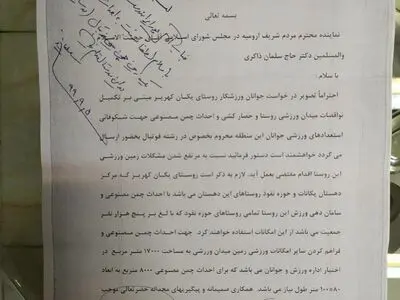 بسمه تعالی
نماینده محترم مردم شریف ارومیه در مجلس شورای اسلامی
والمسلمین دکتر حاج سلمان ذاکری
با سلام :
احتراماً تصویر در خواست جوانان ورزشکار روستای یکان کهریز مبنی بر تکمیل
نواقصات میدان ورزشی روستا و حصار کشی و احداث چمن مصنوعی جهت شکوفائی
استعدادهای ورزشی جوانان این منطقه محروم بخصوص در رشته فوتبال بحضور ارسال
می گردد خواهشمند است دستور فرمائید نسبت به مرتفع شدن مشکلات زمین ورزشی
این روستا اقدام مقتضی بعمل آید. لازم به ذکر است روستای یکان کهریز که مرکز
دهستان یکانات و حوزه نفوذ روستاهای این دهستان می باشد با احداث چمن مصنوعی و
سامان دهی ورزش این روستا تمامی روستاهای حوزه نفوذ که با لغ بر پنج هزار نفر
جمعیت می باشد از این امکانات استفاده خواهند کرد. جهت احداث چمن مصنوعی و
فراهم کردن سایر امکانات ورزشی زمین میدان ورزشی به مساحت ۱۷۰۰۰ متر مربع در
اختیار اداره ورزش و جوانان می باشد که برای احداث چمن مصنوعی ۸۰۰۰ متربع به ابعاد
۸۰×۱۰۰ متر طول نیاز می باشد. همکاری صمیمانه و پیگیریهای مجدانه حضرتعالی موجب
۹۹،۹،۵